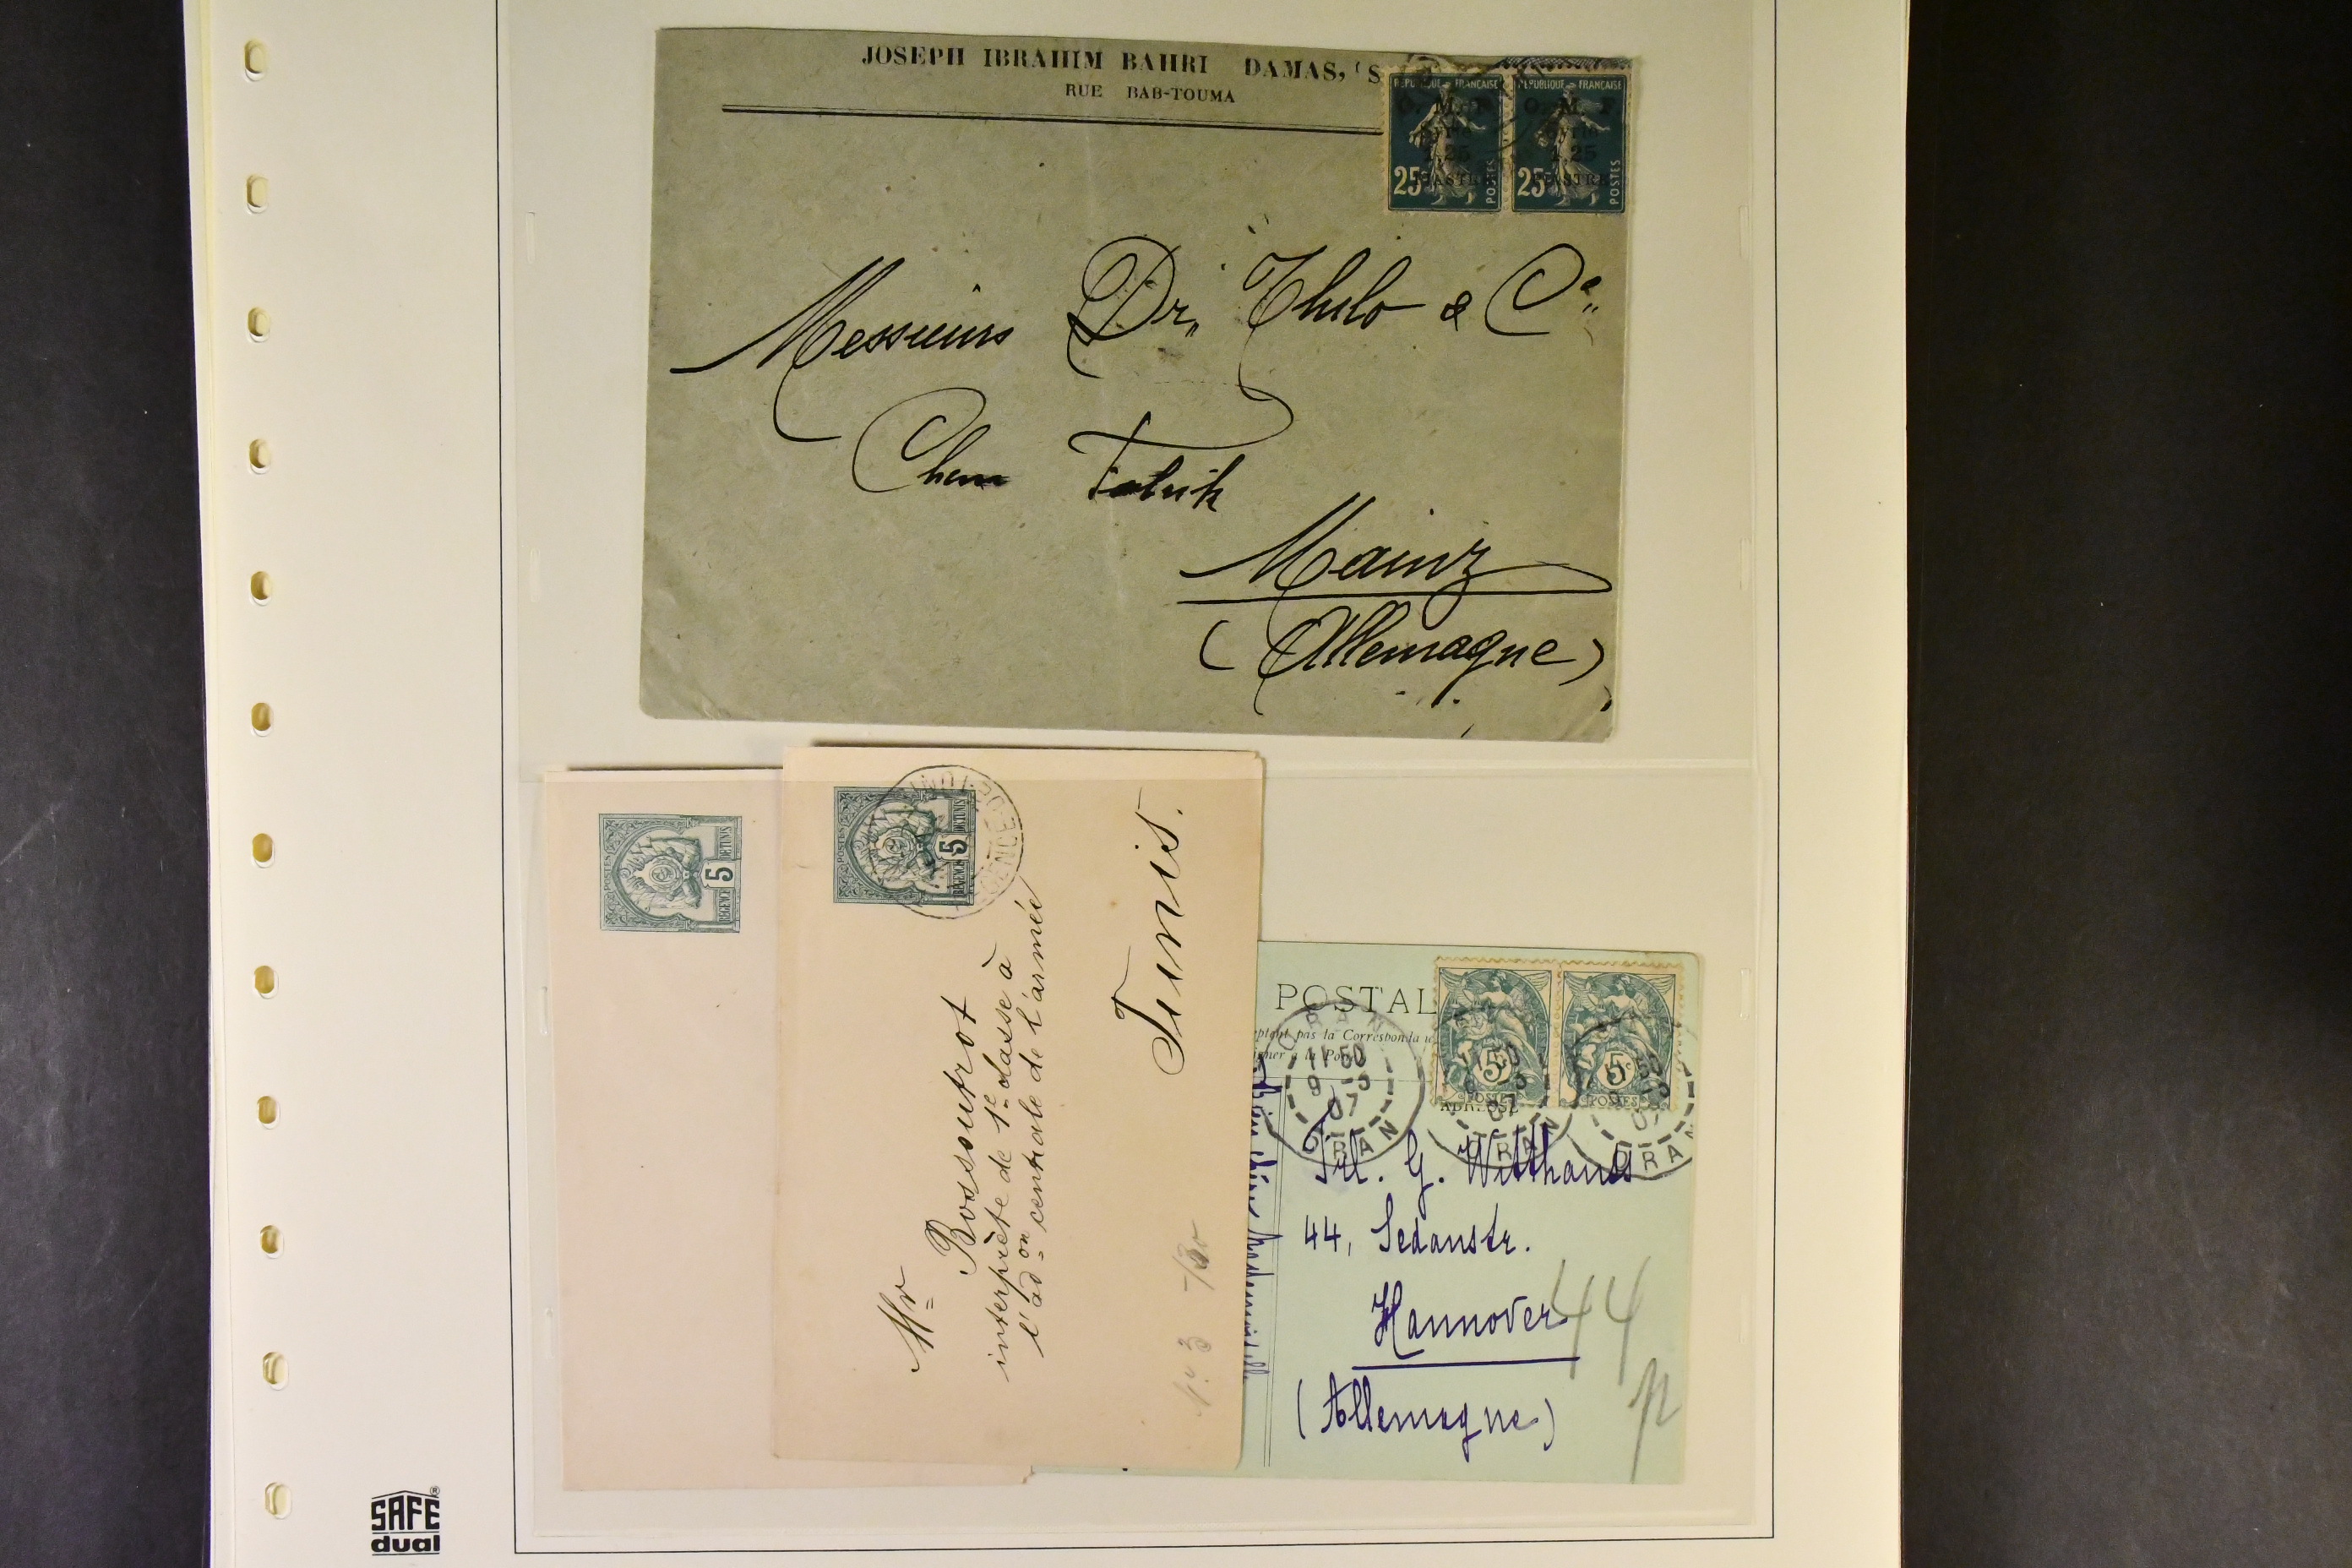 JOSEPH IBRAHIM BAHRI DAMAS, (S
RUE BAB-TOUMA
REPUBLIQUE FRANÇAISE
O. M. F.
Syrie
1,25
PIASTRE
25
POSTES
REPUBLIQUE FRANÇAISE
O. M. F.
Syrie
1,25
PIASTRE
25
POSTES
Messieurs Dr. Thilo & Co.
Chem Fabrik
Mainz
(Allemagne)
POSTES
5
REGENCE DE TUNIS
POSTES
5
REGENCE DE TUNIS
Mr Bossoutrot
interprète de 1e classe à
l'adon centrale de l'armée
Tunis.
No 3
POSTAL
ptent pas la Correspondance
ADRESSE
5c
POSTES
5c
POSTES
ORAN
11 50
9 -3
07
ORAN
Frl. G. Witthaus
44, Sedanstr.
Hannover
(Allemagne)
44
SAFE®
dual